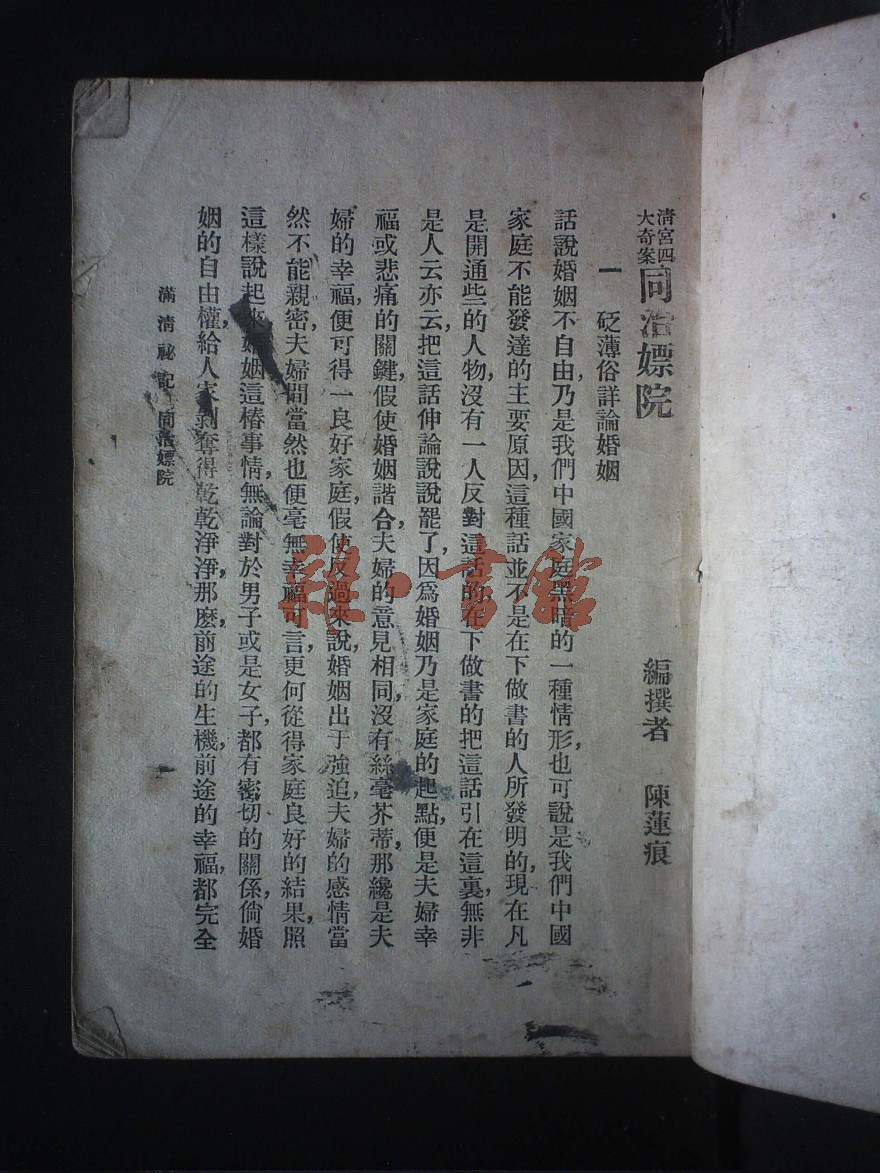 清宮四大奇案 同治嫖院
編撰者 陳蓮痕
一 砭薄俗詳論婚姻
話說婚姻不自由乃是我們中國家庭黑暗的一種情形，也可說是我們中國
家庭不能發達的主要原因，這種話並不是在下做書的人所發明的，現在凡
是開通些的人物，沒有一人反對這話的，在下做書的把這話引在這裏，無非
是人云亦云，把這話伸論說說罷了，因爲婚姻乃是家庭的起點，便是夫婦幸
福或悲痛的關鍵，假使婚姻諧合，夫婦的意見相同，沒有絲毫芥蒂，那纔是夫
婦的幸福，便可得一良好家庭，假使反過來說，婚姻出于強迫，夫婦的感情當
然不能親密，夫婦間當然也便毫無幸福可言，更何從得家庭良好的結果，照
這樣說起來，婚姻這樁事情，無論對於男子或是女子，都有密切的關係，倘婚
姻的自由權，給人家剝奪得乾乾淨淨，那麽前途的生機，前途的幸福，都完全
滿清祕記 同治嫖院
雜·書館